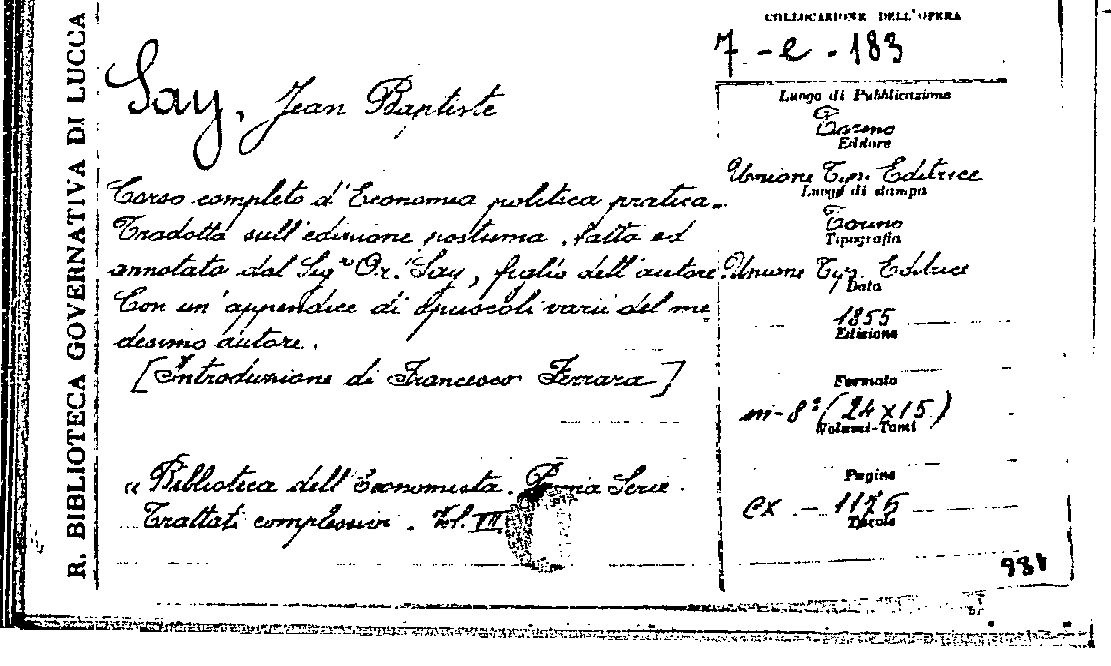 R. BIBLIOTECA GOVERNATIVA DI LUCCA
COLLOCAZIONE DELL'OPERA
7 - e - 183
Say, Jean Baptiste
Corso completo d'Economia politica pratica.
Tradotto sull'edizione postuma, fatta ed
annotata dal Sigr Or. Say, figlio dell'autore.
Con un'appendice di opuscoli varii del me
desimo autore.
[Introduzione di Francesco Ferrara]
" Biblioteca dell'Economista. Prima Serie.
Trattati complessivi. Vol. VII
Luogo di Pubblicazione
Torino
Editore
Unione Tip. Editrice
Luogo di stampa
Torino
Tipografia
Unione Tip. Editrice
Data
1855
Edizione
Formato
in-8° (24x15)
Volumi-Tomi
Pagine
CX - 1176
Tavole